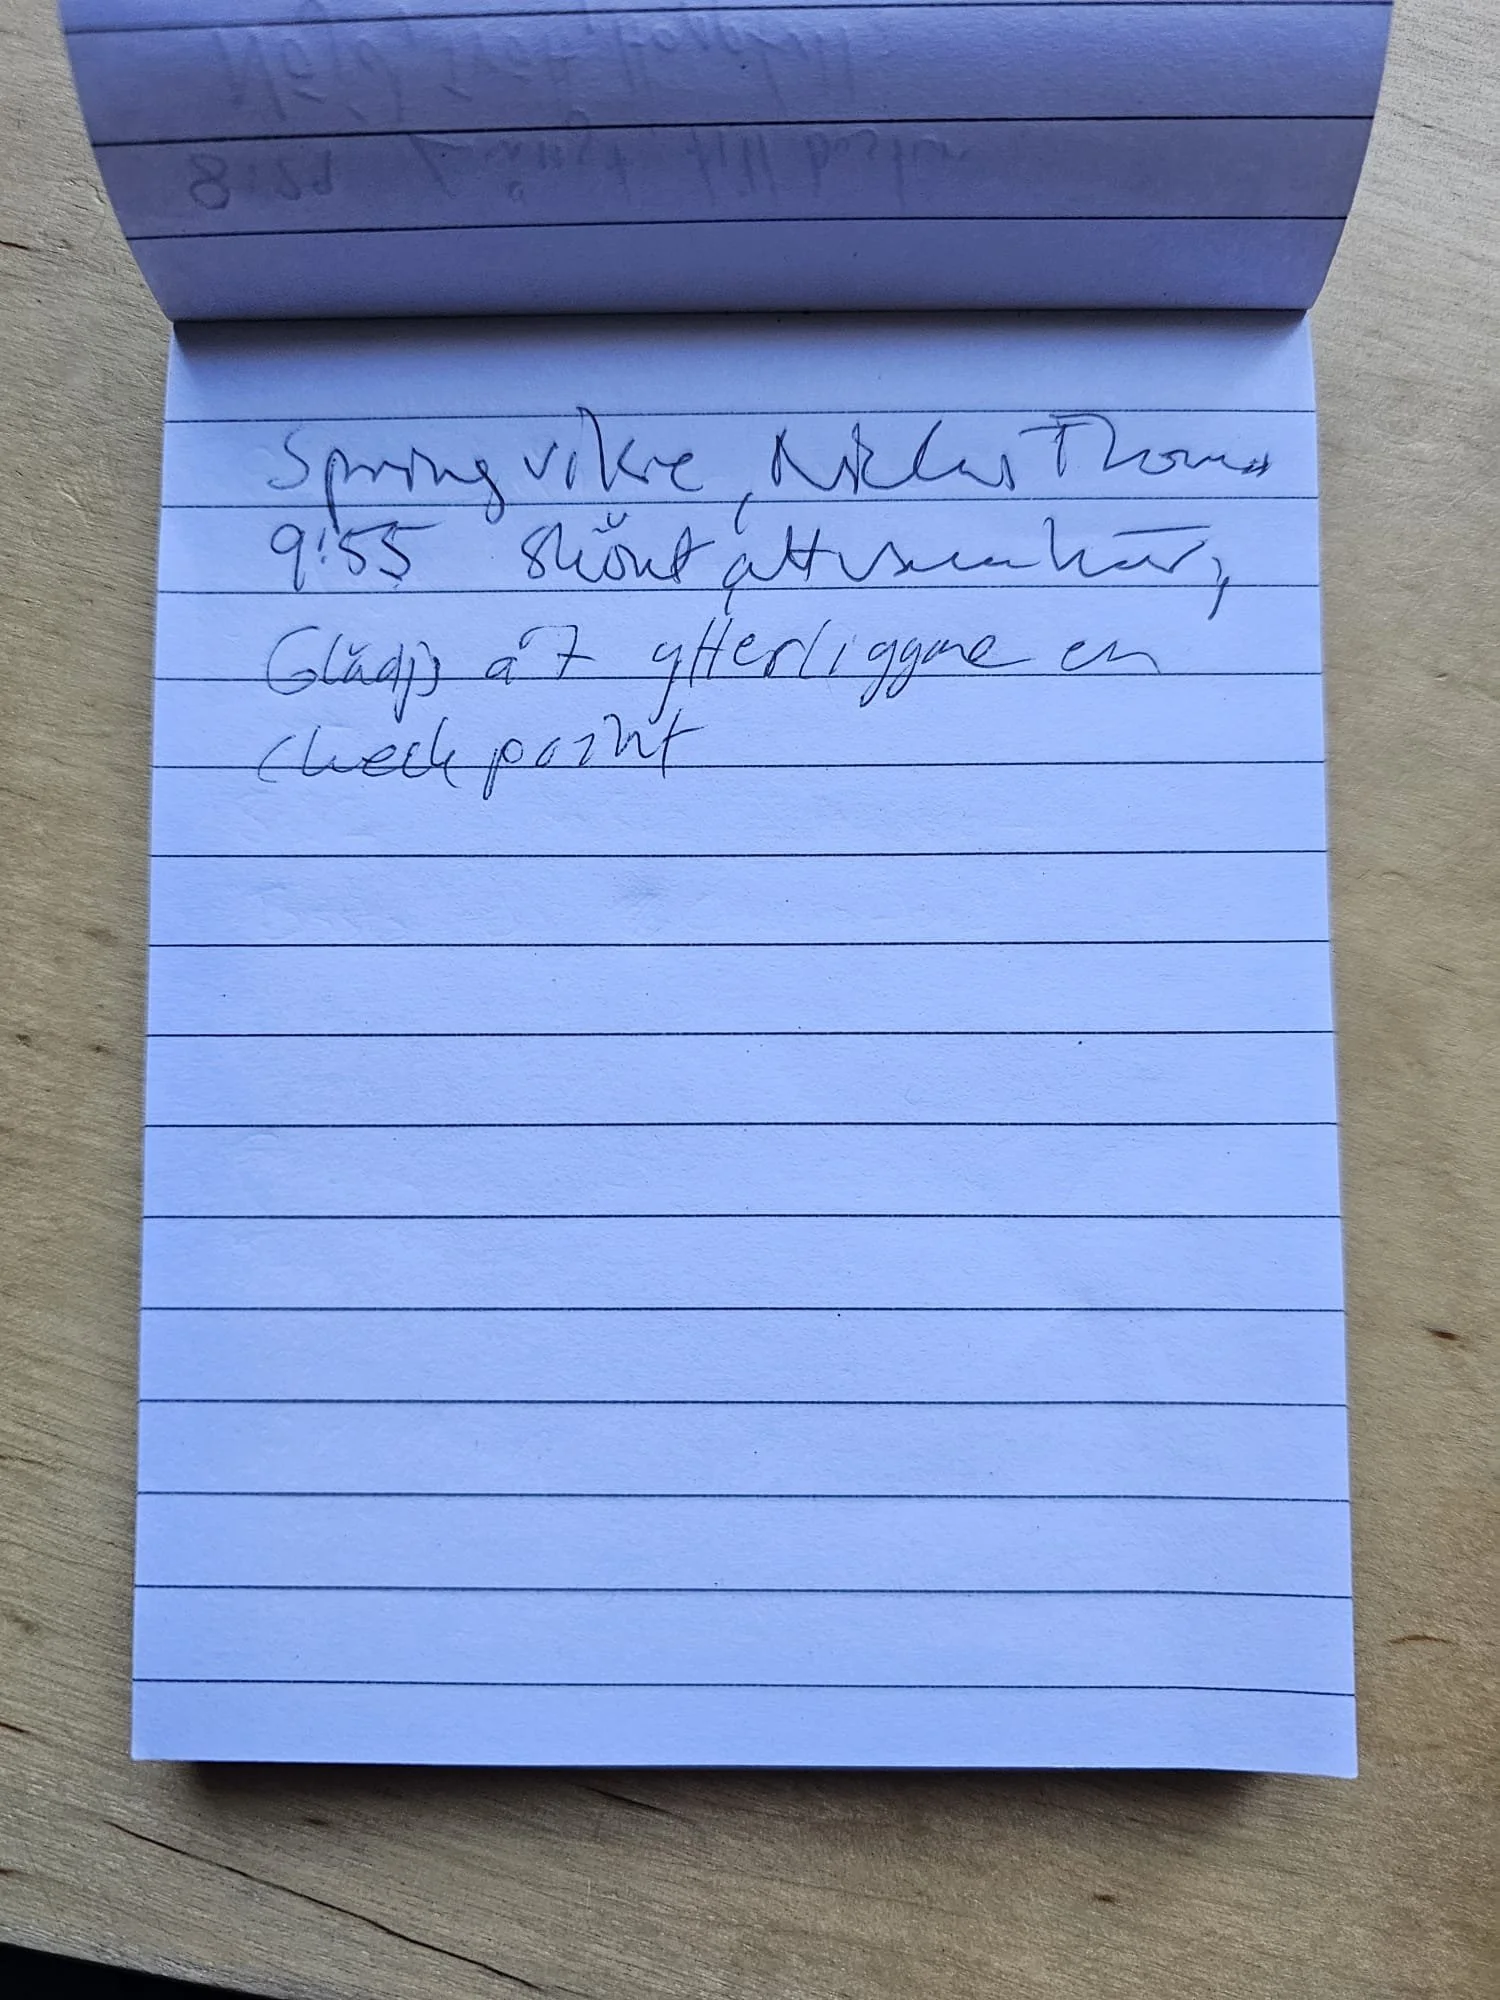 Springvikre, Niclas Thomas
9:55 skönt att vara här,
Glädjs åt ytterliggare en
checkpoint